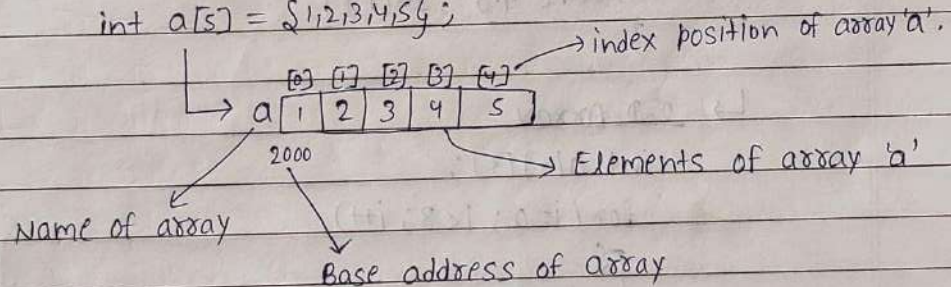 int a[5] = {1,2,3,4,5};
index position of array 'a'.
[0] [1] [2] [3] [4]
a 1 2 3 4 5
2000
Elements of array 'a'
Name of array
Base address of array